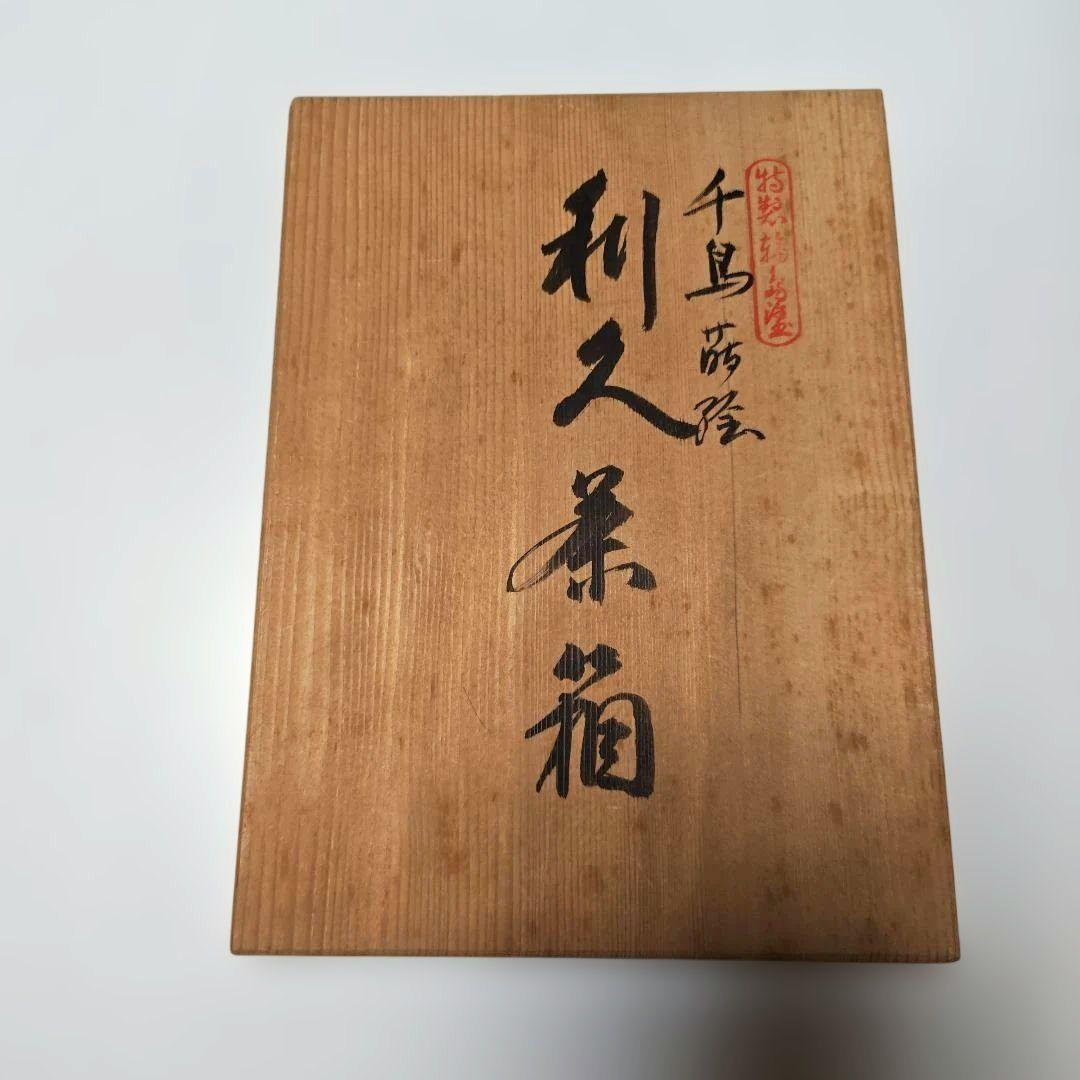 特製輪島塗
千鳥蒔絵
利久茶箱